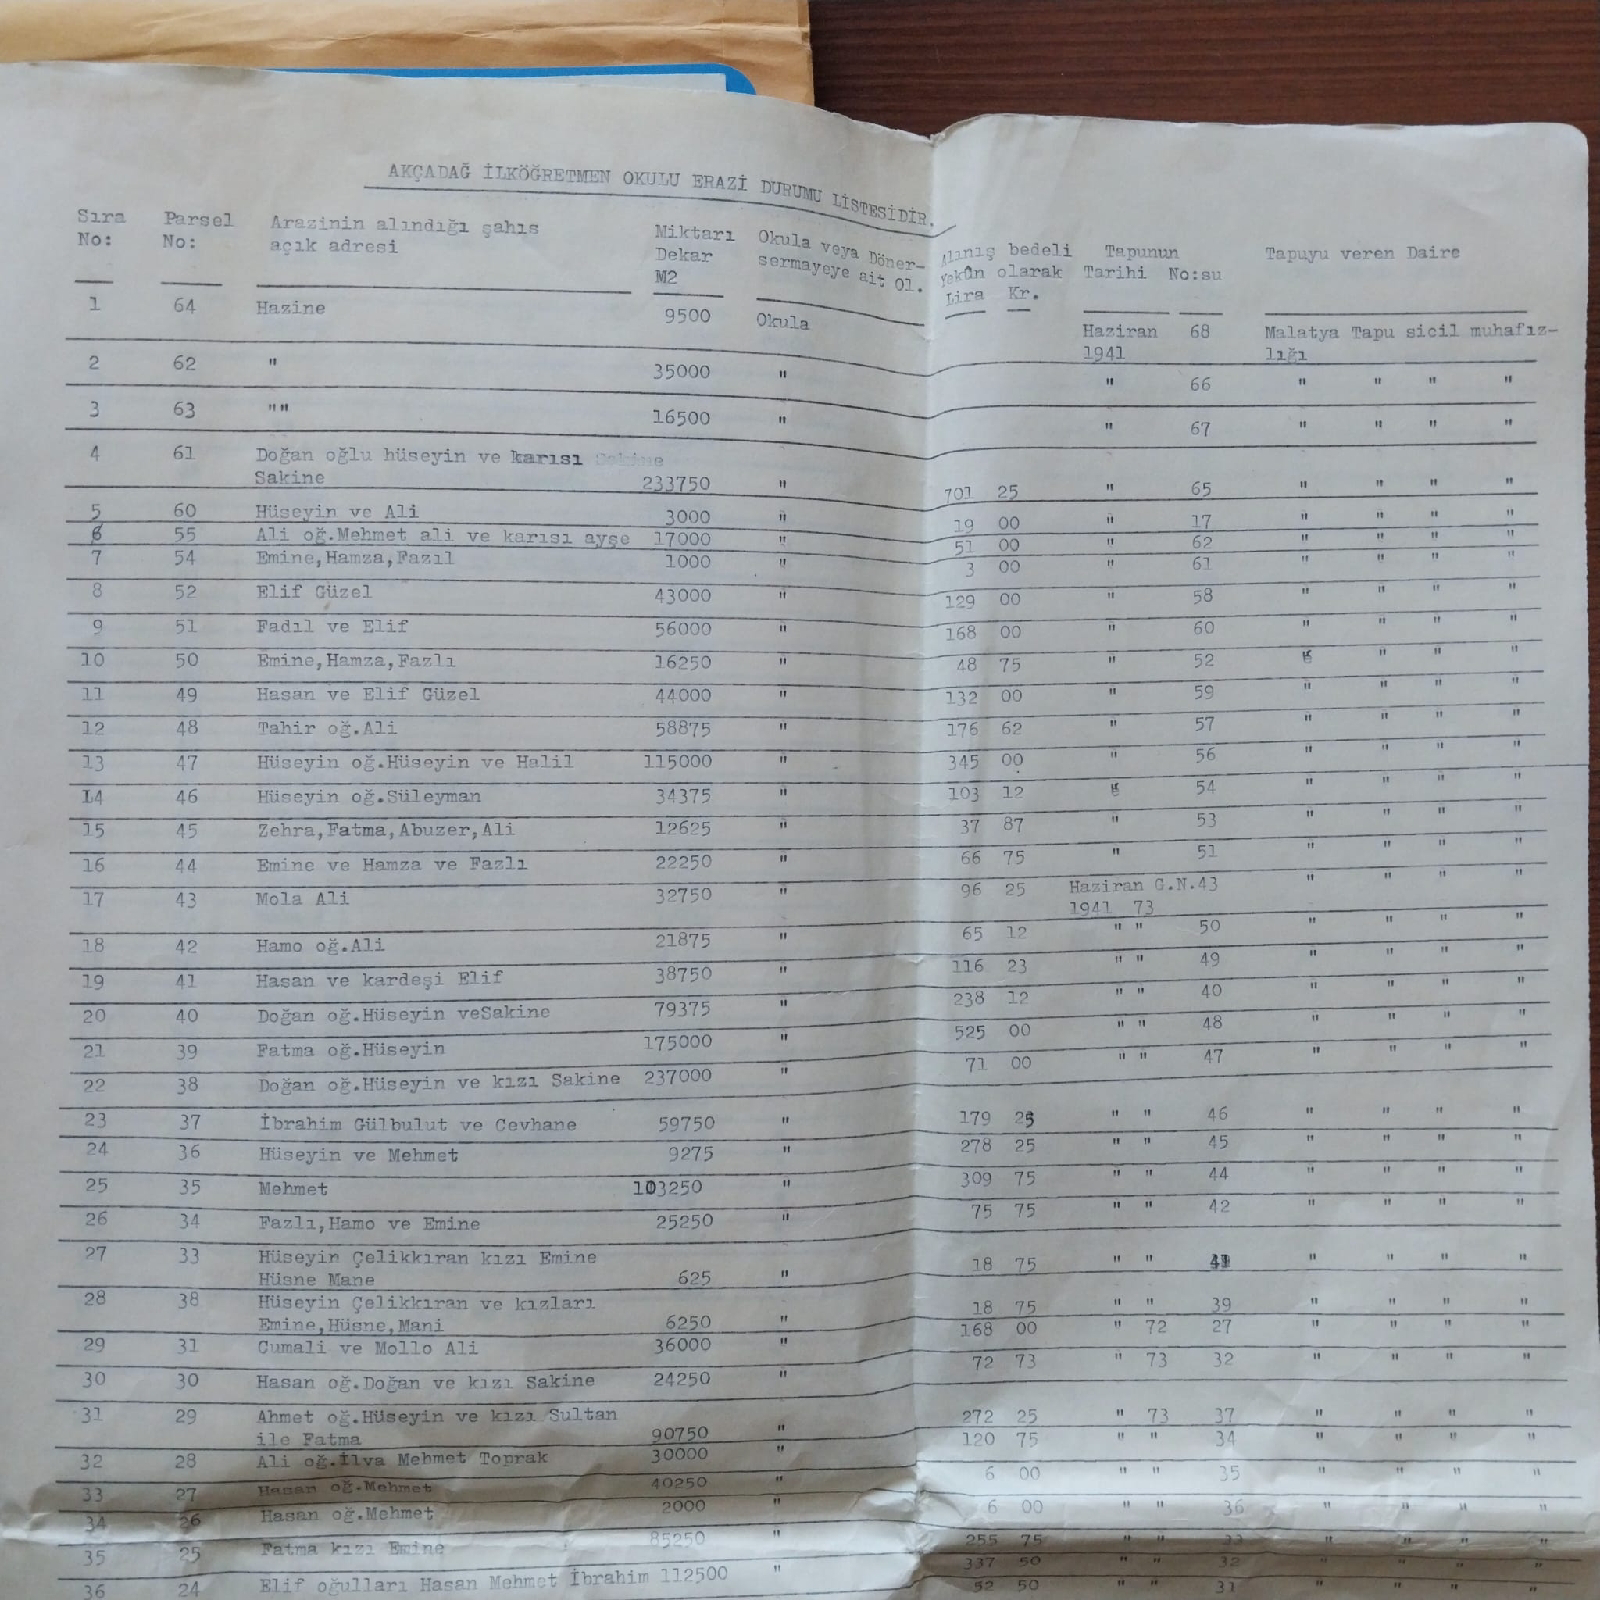 AKÇADAĞ İLKÖĞRETMEN OKULU ERAZİ DURUMU LİSTESİDİR.
Sıra Parsel Arazinin alındığı şahıs Miktarı Okula veya Döner- Alınış bedeli Tapunun Tapuyu veren Daire
No: No: açık adresi Dekar sermayeye ait Ol. Yekûn olarak Tarihi No:su
M2 Lira Kr.
1 64 Hazine 9500 Okula Haziran 68 Malatya Tapu sicil muhafız-
1941 lığı
2 62 " 35000 " " 66 " " " "
3 63 "" 16500 " " 67 " " " "
4 61 Doğan oğlu hüseyin ve karısı
Sakine 233750 " 701 25 " 65 " " " "
5 60 Hüseyin ve Ali 3000 " 19 00 " 17 " " " "
6 55 Ali oğ.Mehmet ali ve karısı ayşe 17000 " 51 00 " 62 " " " "
7 54 Emine,Hamza,Fazıl 1000 " 3 00 " 61 " " " "
8 52 Elif Güzel 43000 " 129 00 " 58 " " " "
9 51 Fadıl ve Elif 56000 " 168 00 " 60 " " " "
10 50 Emine,Hamza,Fazlı 16250 " 48 75 " 52 " " "
11 49 Hasan ve Elif Güzel 44000 " 132 00 " 59 " " " "
12 48 Tahir oğ.Ali 58875 " 176 62 " 57 " " " "
13 47 Hüseyin oğ.Hüseyin ve Halil 115000 " 345 00 " 56 " " " "
14 46 Hüseyin oğ.Süleyman 34375 " 103 12 54 " " " "
15 45 Zehra,Fatma,Abuzer,Ali 12625 " 37 87 " 53 " " " "
16 44 Emine ve Hamza ve Fazlı 22250 " 66 75 " 51 " " " "
17 43 Mola Ali 32750 " 96 25 Haziran G.N.43 " " " "
1941 73
18 42 Hamo oğ.Ali 21875 " 65 12 " " 50 " " " "
19 41 Hasan ve kardeşi Elif 38750 " 116 23 " " 49 " " " "
20 40 Doğan oğ.Hüseyin veSakine 79375 " 238 12 " " 40 " " " "
21 39 Fatma oğ.Hüseyin 175000 " 525 00 " " 48 " " " "
22 38 Doğan oğ.Hüseyin ve kızı Sakine 237000 " 71 00 " " 47 " " " "
23 37 İbrahim Gülbulut ve Cevhane 59750 " 179 25 " " 46 " " " "
24 36 Hüseyin ve Mehmet 9275 " 278 25 " " 45 " " " "
25 35 Mehmet 103250 " 309 75 " " 44 " " " "
26 34 Fazlı,Hamo ve Emine 25250 " 75 75 " " 42 " " " "
27 33 Hüseyin Çelikkıran kızı Emine
Hüsne Mane 625 " 18 75 " " " " " "
28 38 Hüseyin Çelikkıran ve kızları 18 75 " " 39 " " " "
Emine,Hüsne,Mani 6250 "
29 31 Cumali ve Mollo Ali 36000 " 168 00 " 72 27 " " " "
30 30 Hasan oğ.Doğan ve kızı Sakine 24250 " 72 73 " 73 32 " " " "
31 29 Ahmet oğ.Hüseyin ve kızı Sultan 272 25 " 73 37 " " " "
ile Fatma 90750 "
32 28 Ali oğ.İlva Mehmet Toprak 30000 " 120 75 " " 34 " " " "
33 27 Hasan oğ.Mehmet 40250 6 00 " " 35 " " " "
34 26 Hasan oğ.Mehmet 2000 " 6 00 " " 36 " " " "
35 25 Fatma kızı Emine 85250 " 255 75 " " 33 " " " "
337 50 " " 32 " " " "
36 24 Elif oğulları Hasan Mehmet İbrahim 112500 " 52 50 " " 31 " " " "